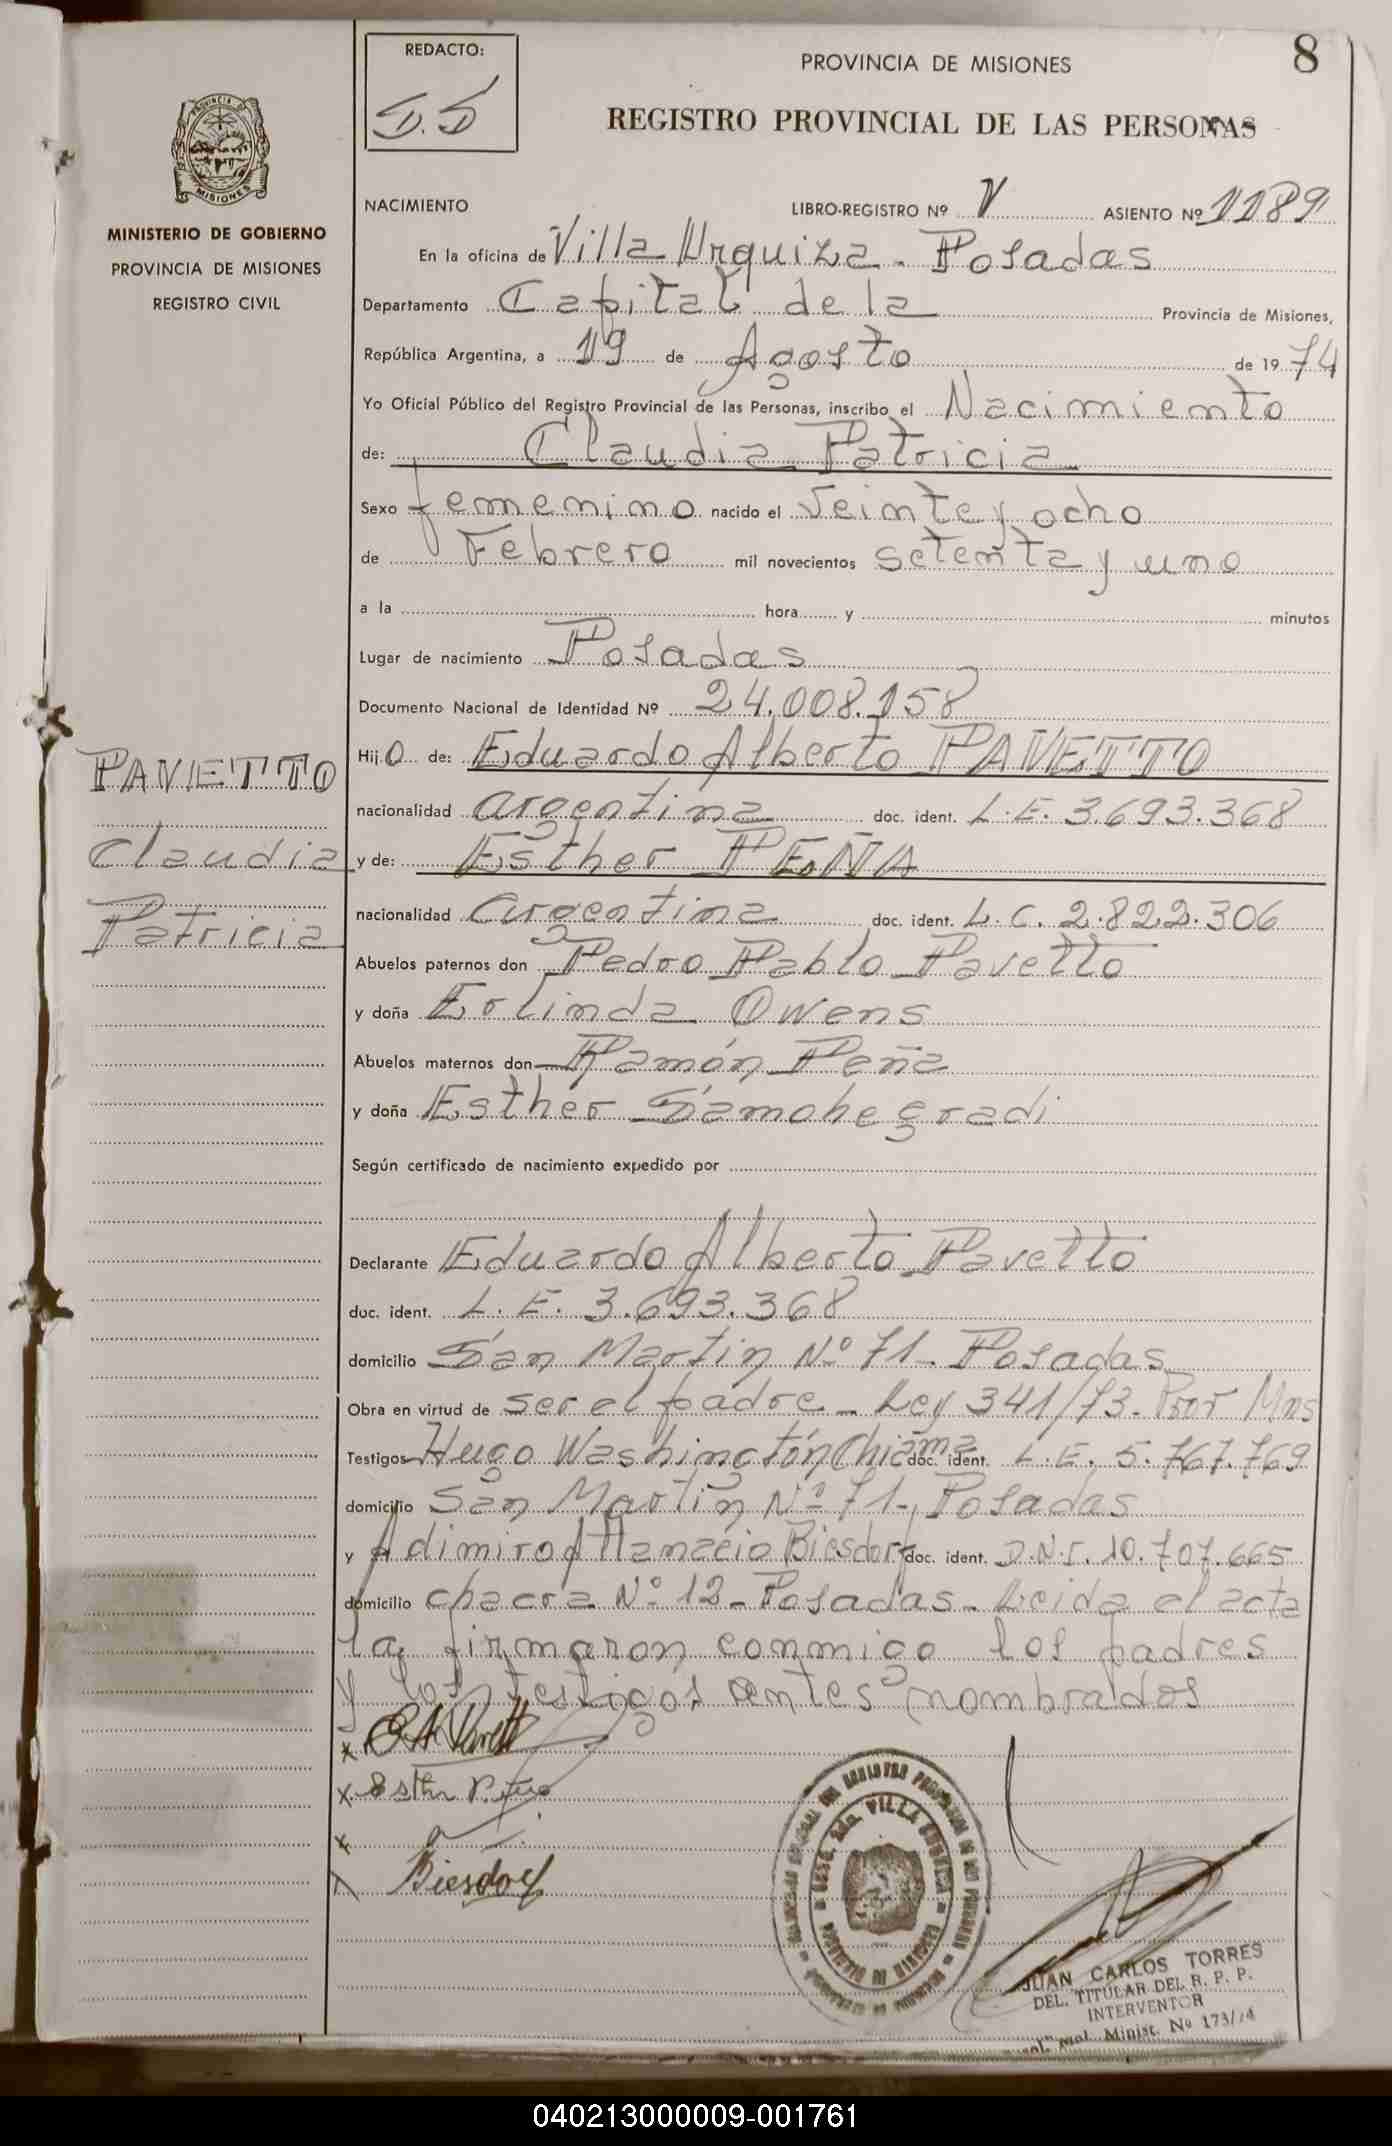 8
REDACTO:
D.D
PROVINCIA DE MISIONES
REGISTRO PROVINCIAL DE LAS PERSONAS
MISIONES
MINISTERIO DE GOBIERNO
PROVINCIA DE MISIONES
REGISTRO CIVIL
NACIMIENTO LIBRO-REGISTRO Nº V ASIENTO Nº 1189
En la oficina de Villa Urquiza - Posadas
Departamento Capital de la Provincia de Misiones,
República Argentina, a 19 de Agosto de 1974
Yo Oficial Público del Registro Provincial de las Personas, inscribo el Nacimiento
de: Claudia Patricia
Sexo femenino nacido el Veinte y ocho
de Febrero mil novecientos setenta y uno
a la hora y minutos
Lugar de nacimiento Posadas
Documento Nacional de Identidad Nº 24.008.158
Hijo de: Eduardo Alberto PAVETTO
nacionalidad argentina doc. ident. L.E. 3.693.368
y de: Esther PEÑA
nacionalidad argentina doc. ident. L.C. 2.822.306
Abuelos paternos don Pedro Pablo Pavetto
y doña Erlinda Owens
Abuelos maternos don Ramón Peña
y doña Esther Samohegradi
Según certificado de nacimiento expedido por
Declarante Eduardo Alberto Pavetto
doc. ident. L.E. 3.693.368
domicilio San Martin Nº 71- Posadas
Obra en virtud de ser el padre - Ley 341/73. Mns
Testigos Hugo Washington Chiama doc. ident. L.E. 5.767.769
domicilio San Martin Nº 71-, Posadas
y Adimiro Attanacio Biesdorf doc. ident. D.N.I. 10.707.665
domicilio chacra Nº 12 - Posadas - Leida el acta
la firmaron conmigo los padres
y los testigos antes nombrados
PAVETTO
Claudia
Patricia
Biesdorf
JUAN CARLOS TORRES
DEL. TITULAR DEL R. P. P.
INTERVENTOR
Minist. Nº 173/74
040213000009-001761